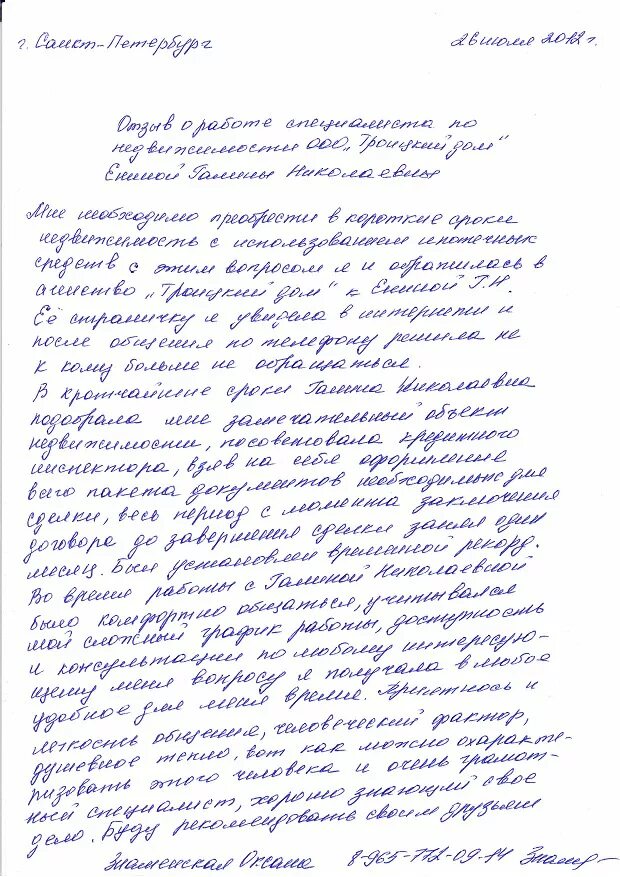 г. Санкт-Петербург 26 июля 2012 г.
Отзыв о работе специалиста по
недвижимости ООО „Троицкий дом"
Ениной Галины Николаевны
Мне необходимо преобрести в короткие сроки
недвижимость с использованием ипотечных
средств с этим вопросом я и обратилась в
агенство „Троицкий дом" к Ениной Г.Н.
Её страничку я увидела в интернети и
после общения по телефону решила не
к кому больше не обращаться.
В кротчайшие сроки Галина Николаевна
подобрала мне замечательный объект
недвижимости, посоветовала кредитного
инспектора, взяв на себя оформление
всего пакета документов необходимых для
сделки, весь период с момента заключения
договора до завершения сделки занял один
месяц. Был установлен временной рекорд.
Во время работы с Галиной Николаевной
было комфортно общаться, учитывался
мой сложный график работы, доступность
и консультации по любому интересую-
щему меня вопросу я получала в любое
удобное для меня время. Приятность и
легкость общения, человеческий фактор,
душевное тепло, вот как можно охаракте-
ризовать этого человека и очень грамот-
ный специалист, хорошо знающий свое
дело. Буду рекомендовать своим друзьям
Знаменская Оксана 8-965-772-09-14 Знамен